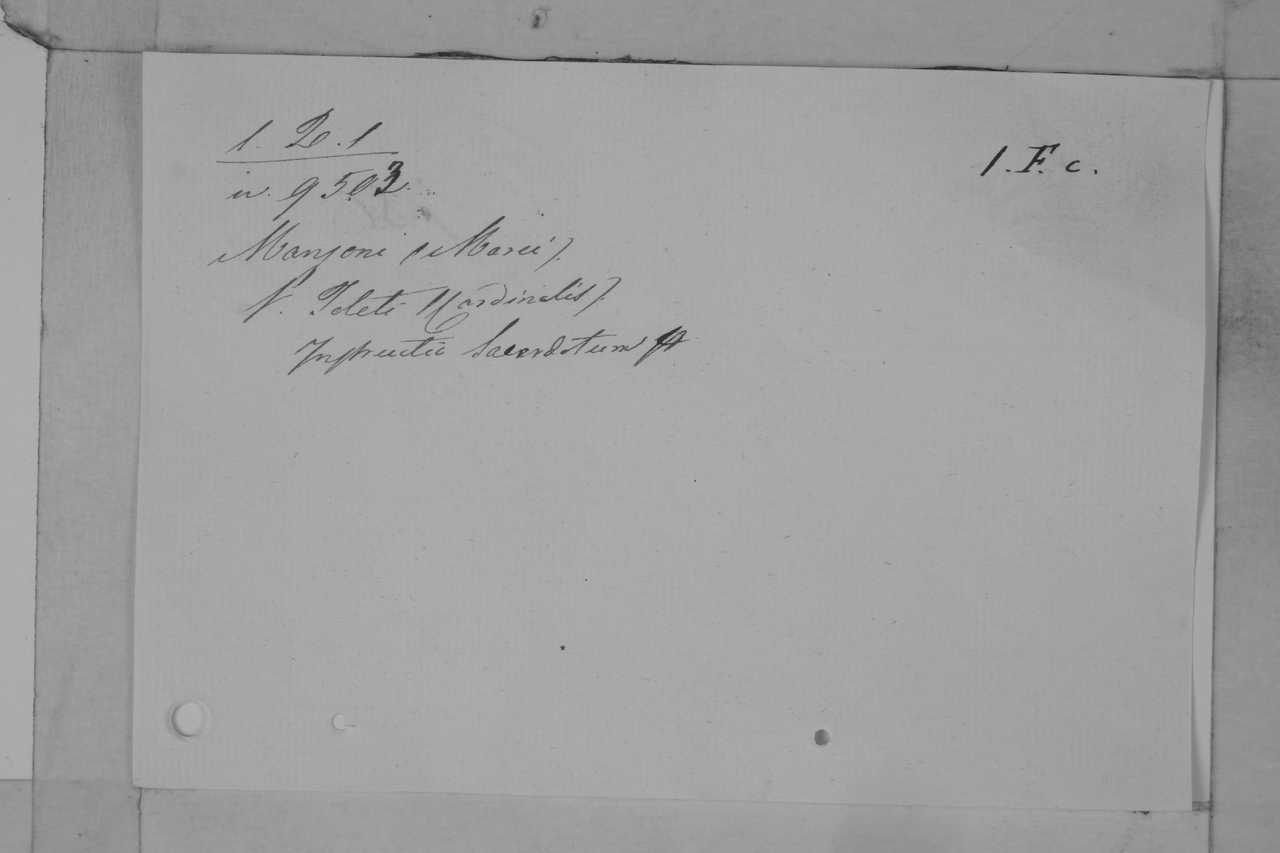 1. D. 1
1. F. c.
n. 9503.
Manzoni (Marci).
V. Toleti (Cardinalis).
Instructio Sacerdotum